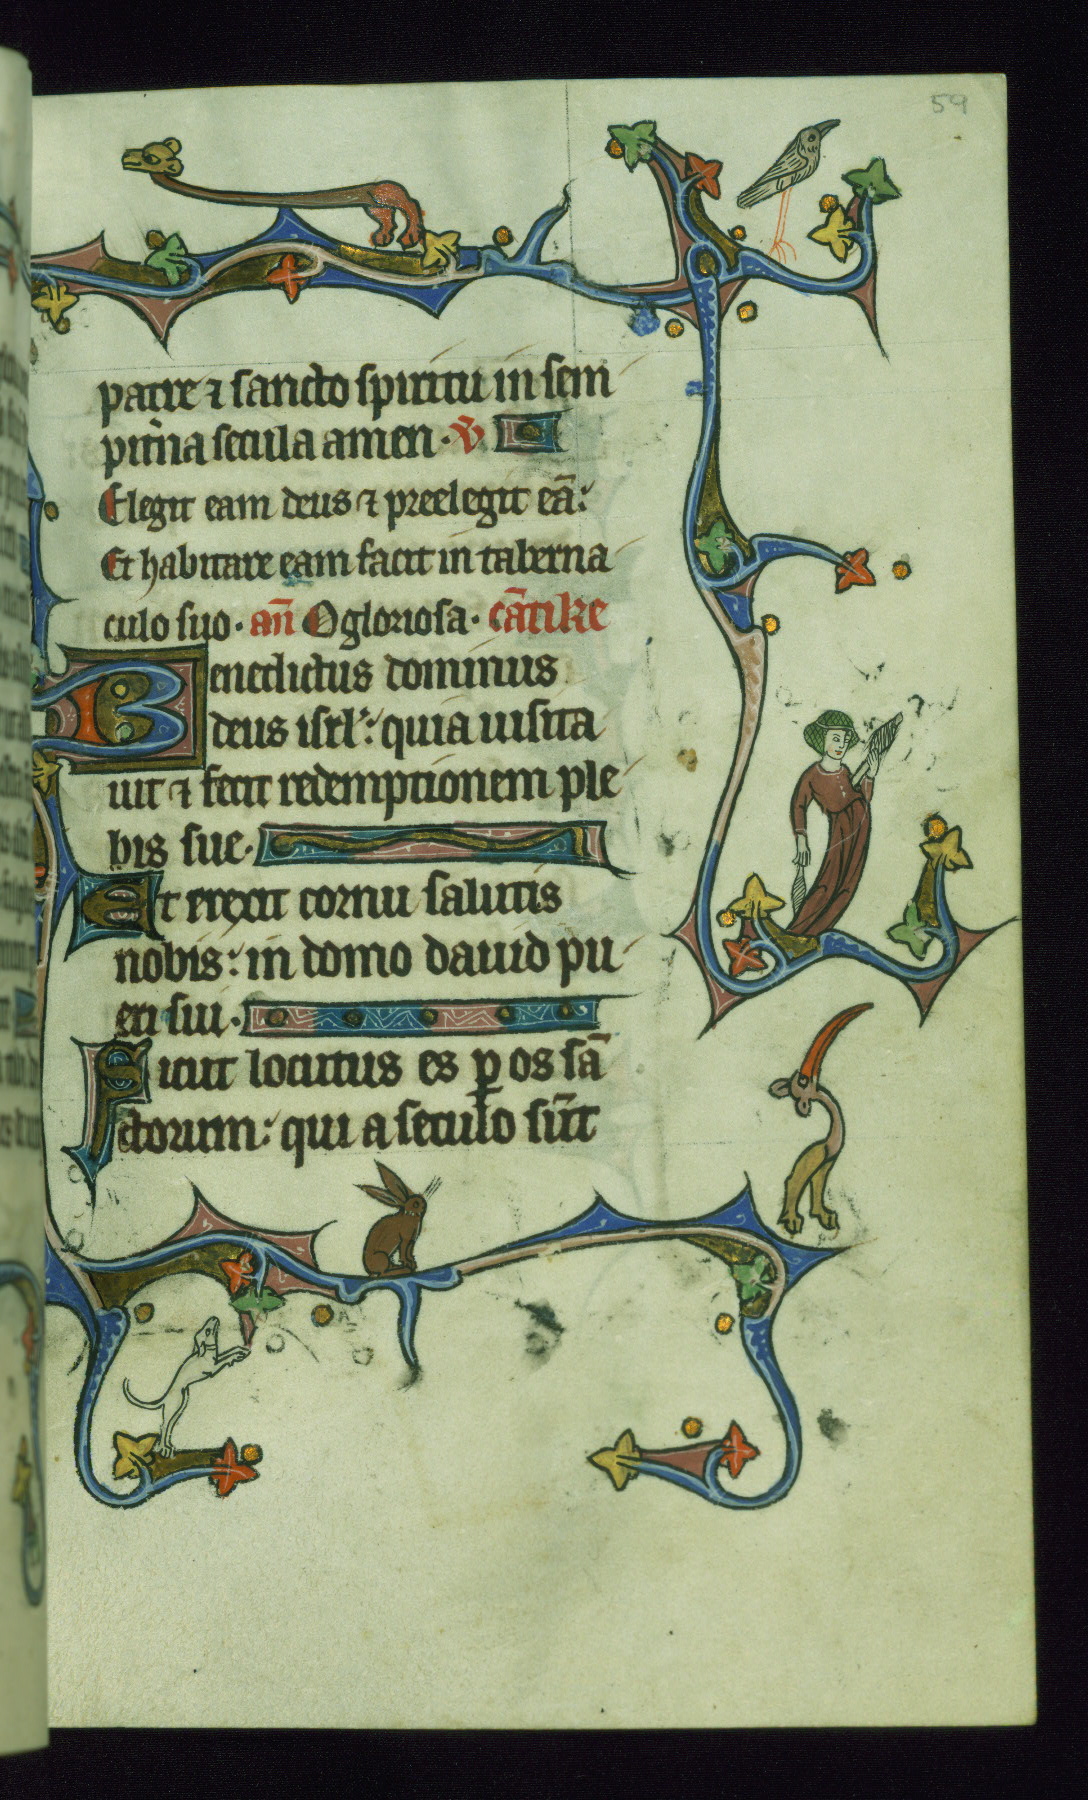 59
patre ⁊ sancto spiritu in sem
pit̾na secula amen · v̄
Elegit eam deus ⁊ preelegit eā:
Et habitare eam facit in taberna
culo suo · añ O gloriosa · cātike
Benedictus dominus
deus isrl': quia uisita
uit ⁊ fecit redemptionem ple
bis sue ·
Et erexit cornu salutis
nobis: in domo dauid pu
eri sui ·
Sicut locutus es ꝑ os sā
ctorum: qui a seculo sūt